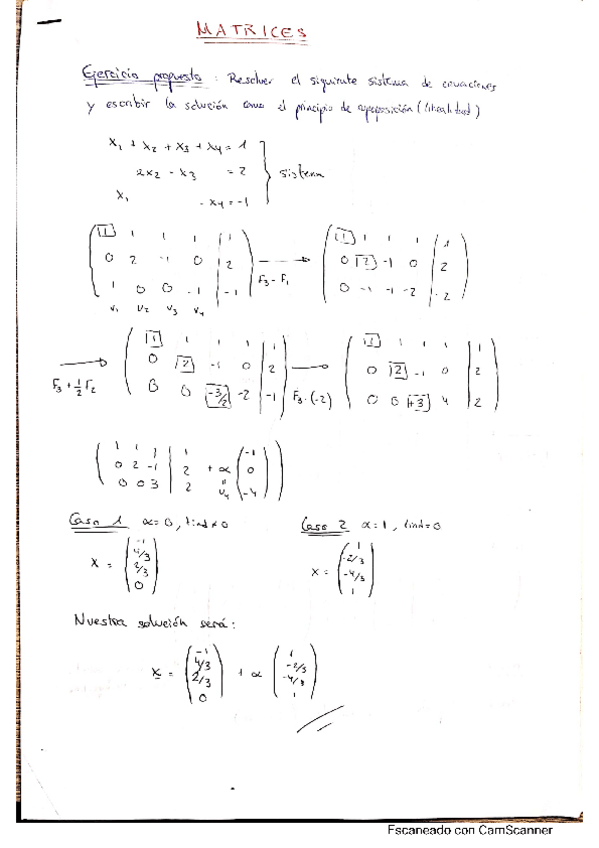 MATRICES
Ejercicio propuesto: Resolver el siguiente sistema de ecuaciones
y escribir la solución como el principio de superposición (linealidad)
x₁ + x₂ + x₃ + x₄ = 1
2x₂ - x₃ = 2
x₁ - x₄ = -1
sistema
1 1 1 1 | 1
0 2 -1 0 | 2
1 0 0 -1 | -1
v₁ v₂ v₃ v₄
F₃ - F₁
1 1 1 1 | 1
0 2 -1 0 | 2
0 -1 -1 -2 | -2
F₃ + 1/2 F₂
1 1 1 1 | 1
0 2 -1 0 | 2
0 0 -3/2 -2 | -1
F₃ · (-2)
1 1 1 1 | 1
0 2 -1 0 | 2
0 0 +3 4 | 2
1 1 1 | 1 -1
0 2 -1 | 2 + α 0
0 0 3 | 2 v₄ -4
Caso 1 α = 0, lind ≠ 0
x = (-1 4/3 2/3 0)
Caso 2 α = 1, lind = 0
x = (1 -2/3 -4/3 1)
Nuestra solución será:
x = (-1 4/3 2/3 0) + α (1 -2/3 -4/3 1)
Escaneado con CamScanner